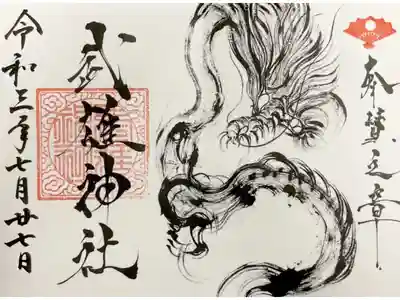 奉賛之章
武護神社
令和三年七月廿七日